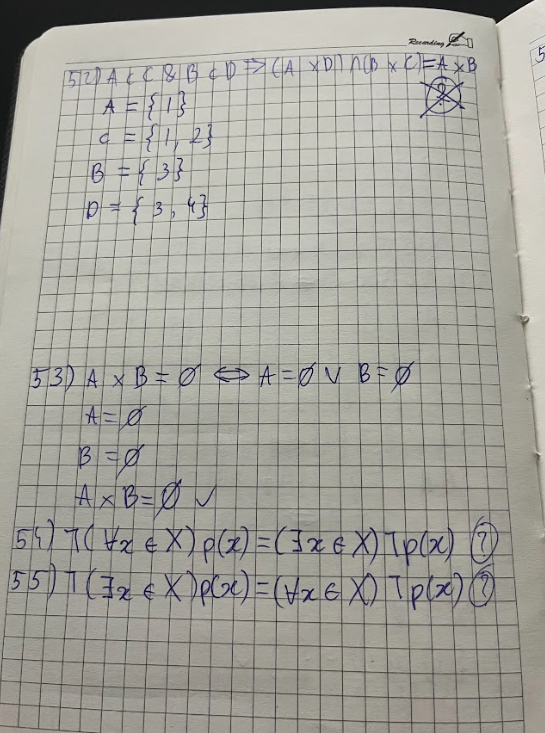 Recording
52) A ⊂ C & B ⊂ D ⇒ (A × D) ∩ (B × C) = A × B
A = {1}
C = {1, 2}
B = {3}
D = {3, 4}
53) A × B = ∅ ⇔ A = ∅ ∨ B = ∅
A = ∅
B = ∅
A × B = ∅ ✓
54) ¬(∀x ∈ X) p(x) = (∃x ∈ X) ¬p(x) ?
55) ¬(∃x ∈ X) p(x) = (∀x ∈ X) ¬p(x) ?